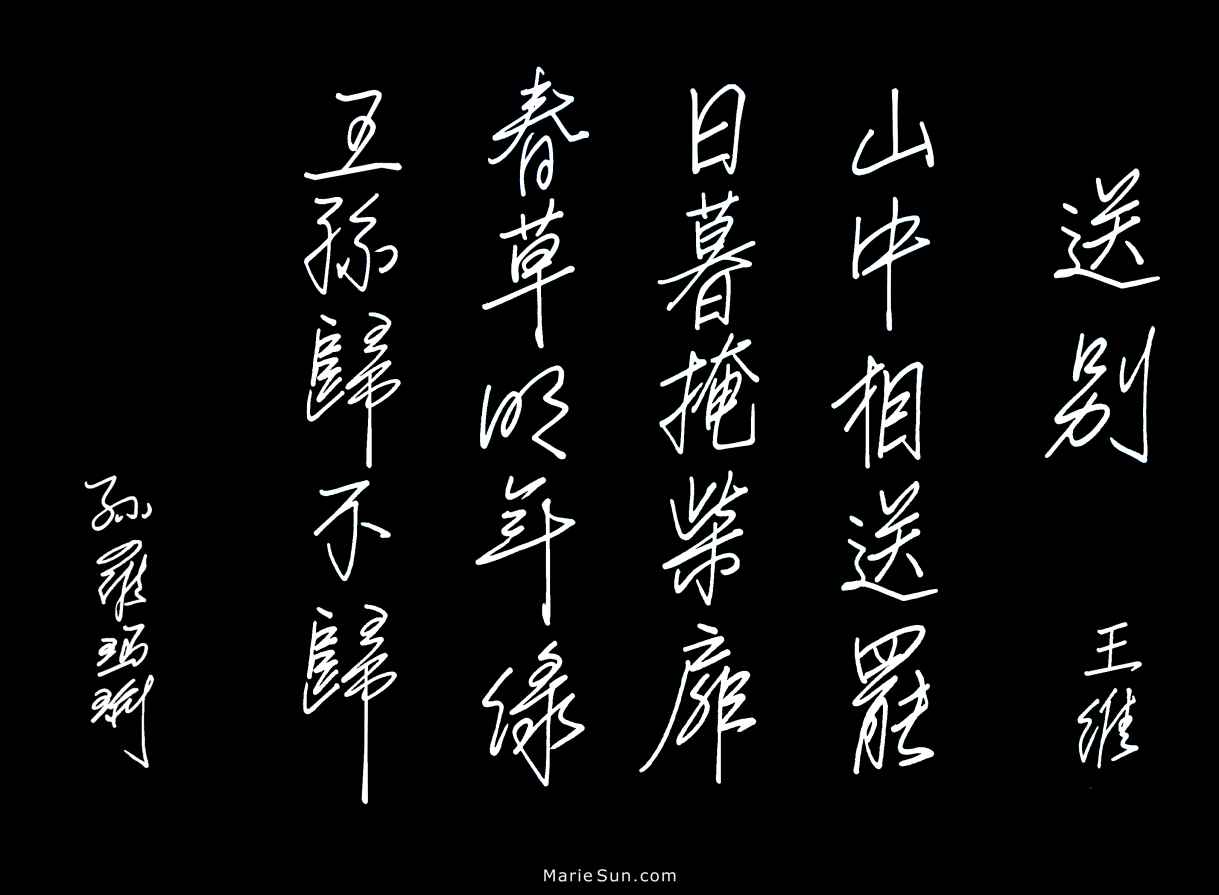 送別
王維
山中相送罷
日暮掩柴扉
春草明年綠
王孫歸不歸
孫羅瑪琍
MarieSun.com